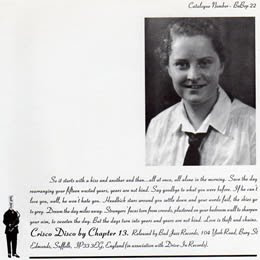 Catalogue Number - BaBop 22
So it starts with a kiss and another and then...all at once, all alone in the morning. Save the day
rearranging your fifteen wasted years, years are not kind. Say goodbye to what you were before. If he can't
love you, well, he won't hate you. Headlock stars around you settle down and your words fail, the skies go
grey. Dream the day miles away. Strangers' faces torn from crowds, plastered on your bedroom wall to sharpen
your aim, to sweeten the day. But the days turn into years and years are not kind. Love is theft and chains.
Crisco Disco by Chapter 13. Released by Bad Jazz Records, 104 York Road, Bury St
Edmunds, Suffolk, IP33 3EG, England (in association with Drive-In Records).